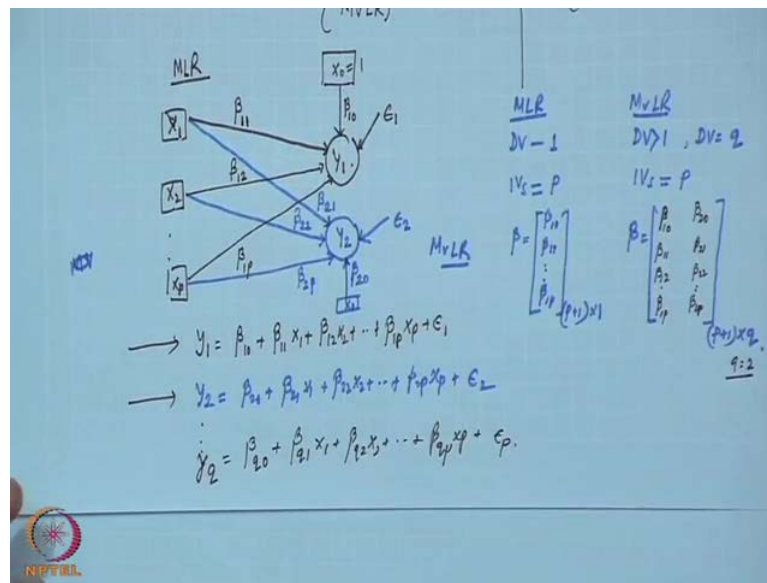 (MVLR)
MLR
x₀=1
β₁₀
ε₁
x₁
β₁₁
y₁
x₂
β₁₂
β₂₁
β₂₂
y₂
ε₂
MvLR
⋮
xp
β₁p
β₂p
β₂₀
y₁ = β₁₀ + β₁₁x₁ + β₁₂x₂ + ·· + β₁p xp + ε₁
y₂ = β₂₀ + β₂₁x₁ + β₂₂x₂ + ·· + β₂p xp + ε₂
⋮
yq = βq0 + βq1 x₁ + βq2 x₂ + ·· + βqp xp + εp.
MLR
DV – 1
IVs = p
β = [β₁₀ β₁₁ ⋮ β₁p] (p+1)×1
MvLR
DV>1, DV= q
IVs = p
β = [β₁₀ β₂₀
β₁₁ β₂₁
β₁₂ β₂₂
⋮
β₁p β₂p] (p+1)×q.
q=2
NPTEL